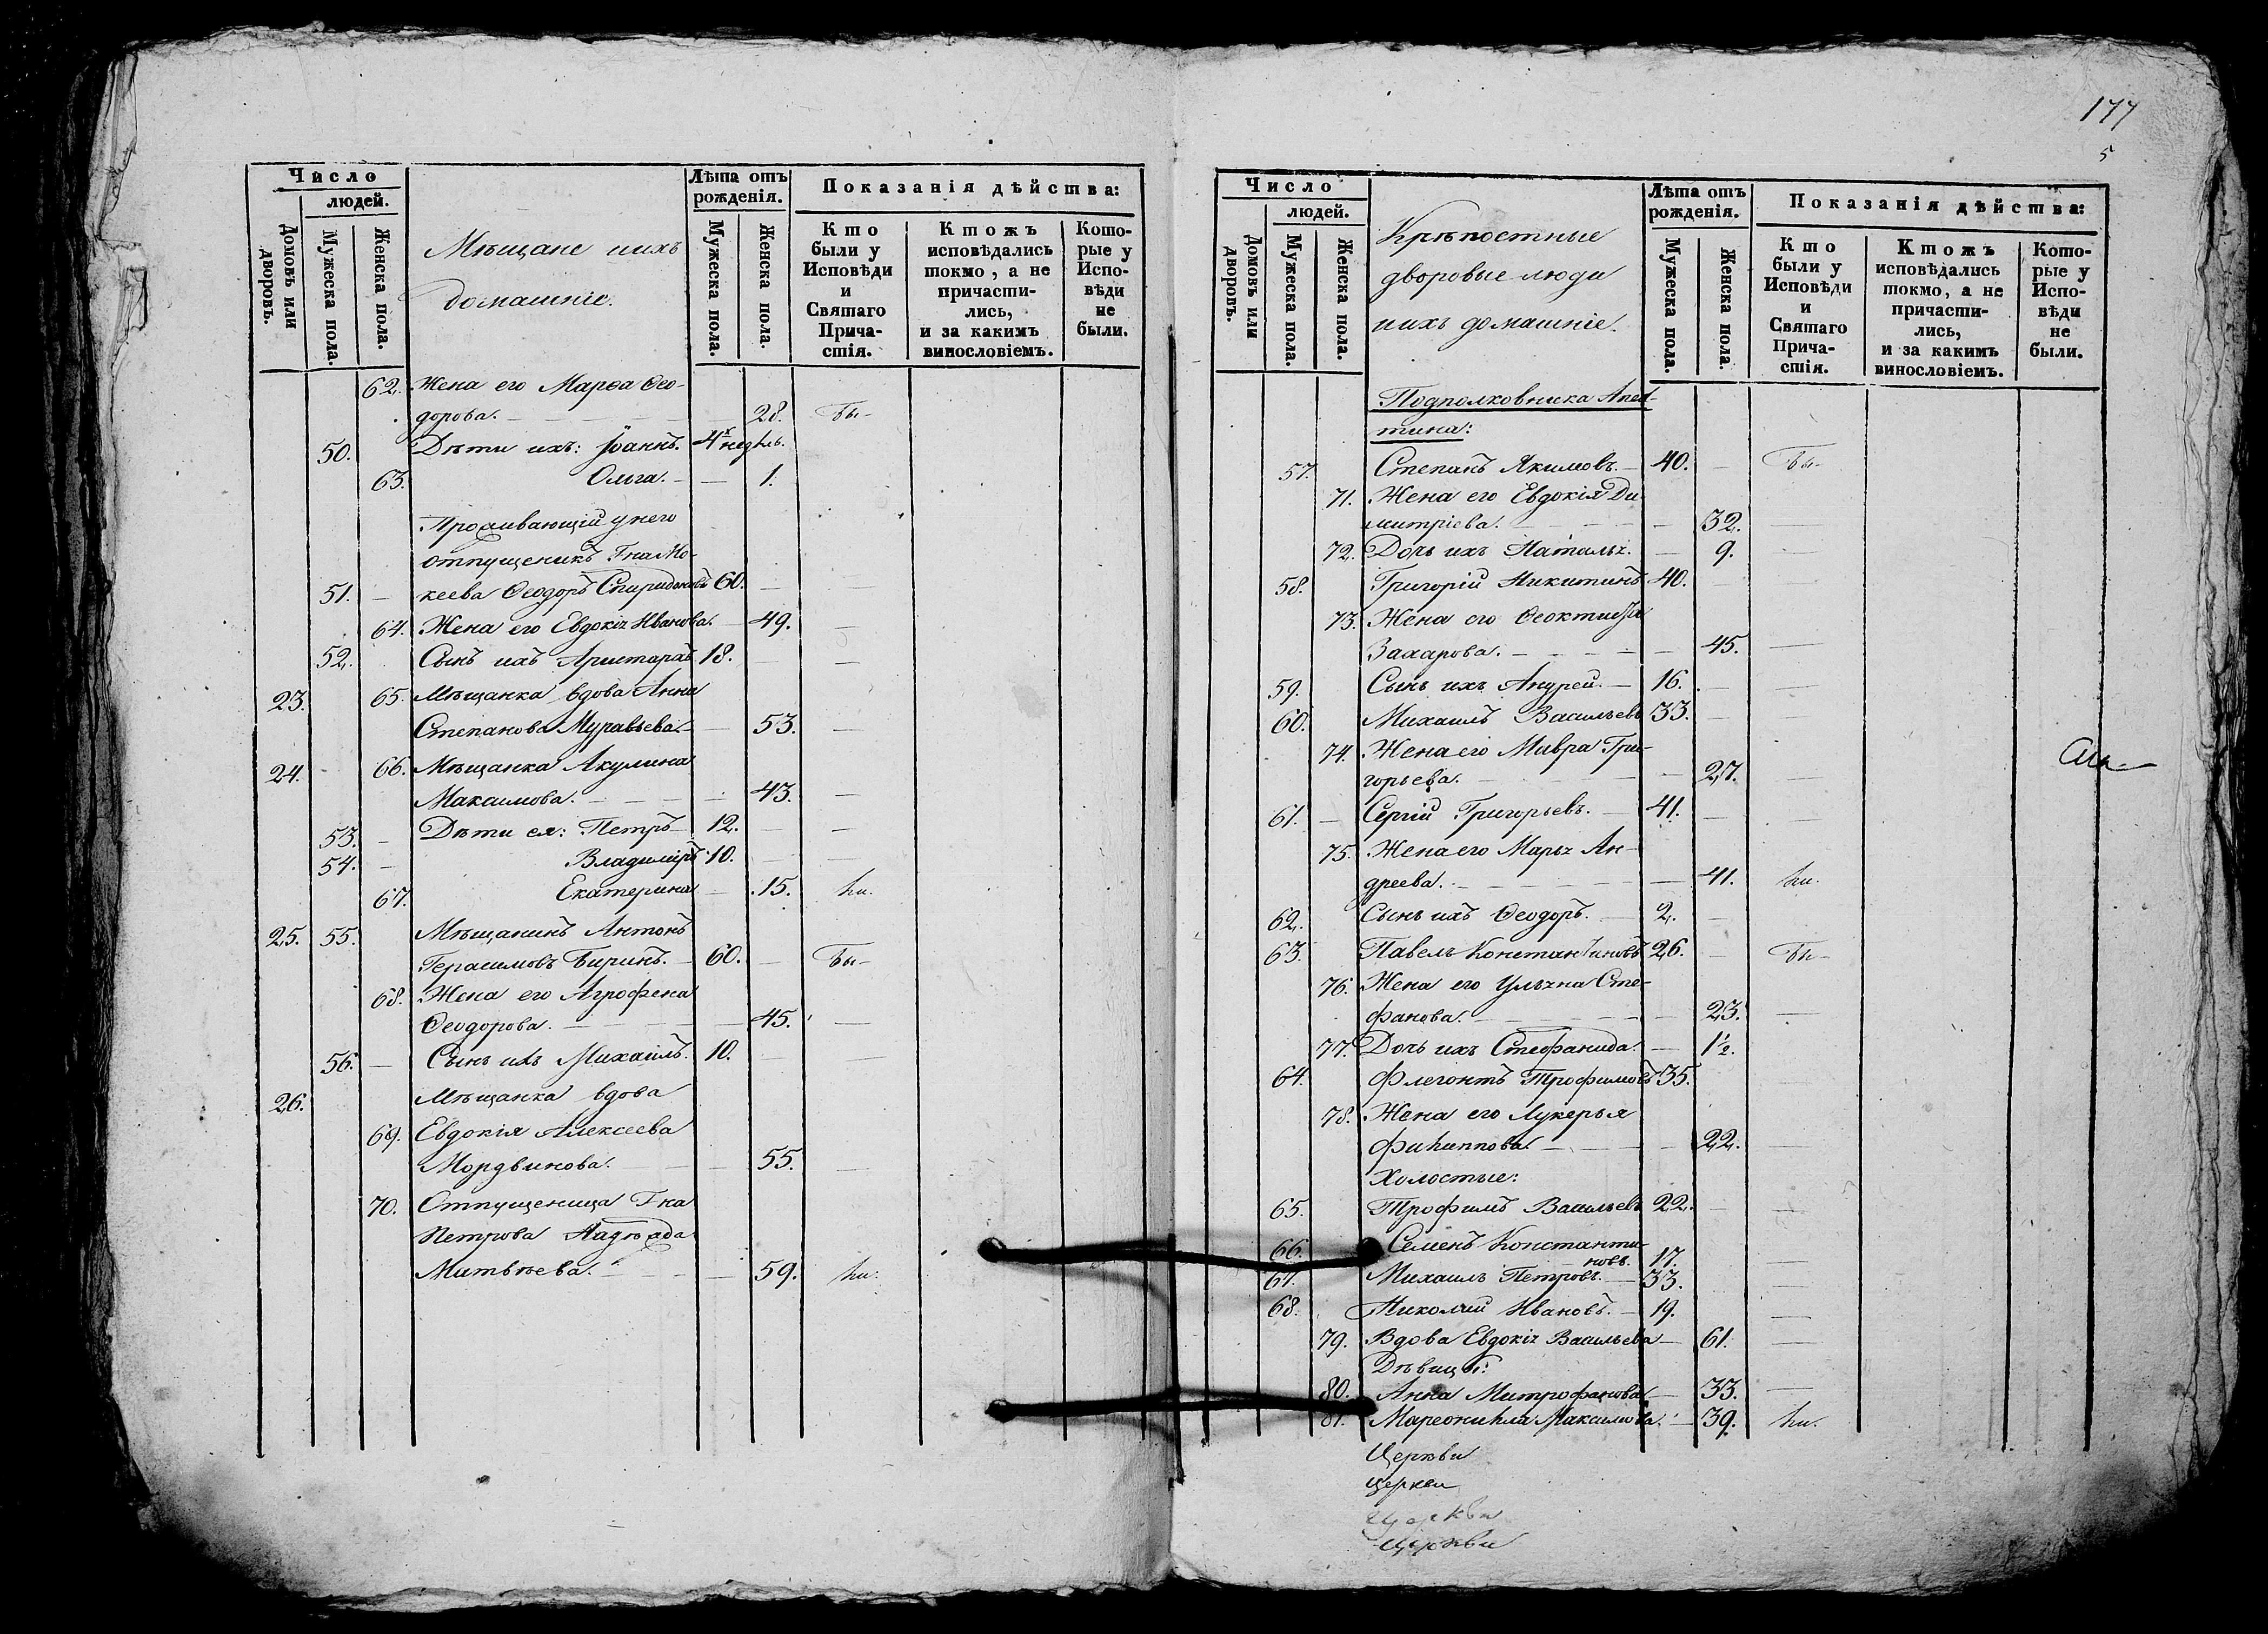 Число
людей.
Домовъ или дворовъ.
Мужеска пола.
Женска пола.
Мѣщане и ихъ
домашніе.
Лѣта отъ
рожденія.
Мужеска пола.
Женска пола.
Показанія дѣйства:
Кто
были у
Исповѣди
и
Святаго
Прича-
стія.
Ктожъ
исповѣдались
токмо, а не
причасти-
лись,
и за какимъ
винословіемъ.
Кото-
рые у
Испо-
вѣди
не
были.
62. Жена его Марѳа Ѳео-
дорова. 28. бы-
50. Дѣти ихъ: Іоаннъ. 4х недѣль.
63. Ольга. 1.
Проживающій у него
отпущеникъ Гна Мо-
51. кеева Ѳеодоръ Спиридоновъ 60.
64. Жена его Евдокія Иванова. 49.
52. Сынъ ихъ Аристархъ 18.
23. 65. Мѣщанка вдова Анна
Степанова Муравьева. 53.
24. 66. Мѣщанка Акулина
Максимова. 43.
53. Дѣти ея: Петръ 12.
54. Владиміръ 10.
67. Екатерина 15.
25. 55. Мѣщанинъ Антонъ
Герасимовъ Биринъ. 60. бы-
68. Жена его Агрофена
Ѳеодорова. 45.
56. Сынъ ихъ Михаилъ. 10.
26. Мѣщанка вдова
69. Евдокія Алексеева
Мордвинова. 55.
70. Отпущеница Г-на
Петрова
Матвѣева. 59.
177
5
Число
людей.
Домовъ или дворовъ.
Мужеска пола.
Женска пола.
Крѣпостные
дворовые люди
и ихъ домашніе.
Лѣта отъ
рожденія.
Мужеска пола.
Женска пола.
Показанія дѣйства:
Кто
были у
Исповѣди
и
Святаго
Прича-
стія.
Ктожъ
исповѣдались
токмо, а не
причасти-
лись,
и за какимъ
винословіемъ.
Кото-
рые у
Испо-
вѣди
не
были.
Подполковника
тина:
57. Степанъ Якимовъ. 40. бы-
71. Жена его Евдокія Ди-
митріева. 32.
72. Дочь ихъ Наталья. 9.
58. Григорій Никитинъ 40.
73. Жена его Ѳеоктиста
Захарова. 45.
59. Сынъ ихъ Андрей. 16.
60. Михаилъ Васильевъ 33.
74. Жена его Мавра Гри-
горьева. 27.
61. Сергій Григорьевъ. 41.
75. Жена его Марья Ан-
дреева. 41.
62. Сынъ ихъ Ѳеодоръ. 2.
63. Павелъ Константиновъ 26. бы-
76. Жена его Ульяна Сте-
фанова. 23.
77. Дочь ихъ Стефанида. 1½.
64. Флегонтъ Трофимовъ 35.
78. Жена его Лукерья
Филиппова. 22.
Холостые:
65. Трофимъ Васильевъ 22.
66. Семенъ Константи-
новъ. 17.
67. Михаилъ Петровъ. 33.
68. Николай Ивановъ. 19.
79. Вдова Евдокія Васильева 61.
Дѣвицы:
80. Анна Митрофанова. 33.
81. Максимова. 39.
Церкви
церкви
церкви
Церкви